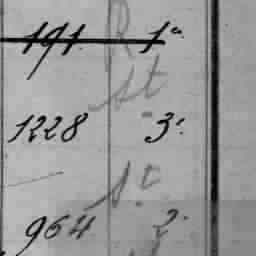 191 R 1a
St
1228 3.
St
964 2.